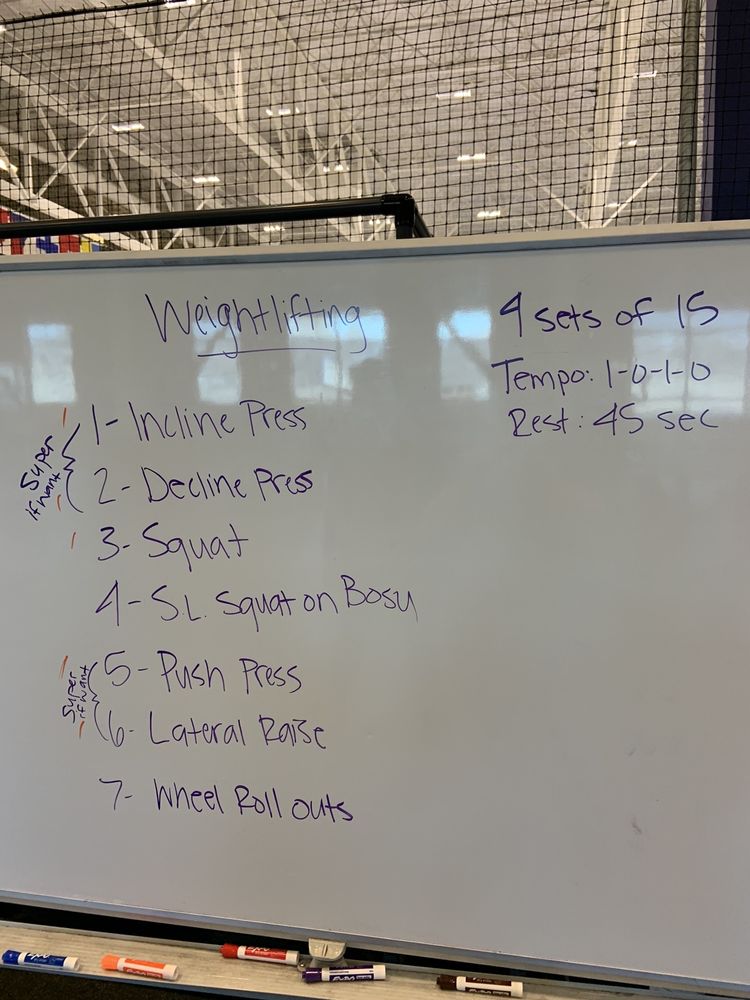 Weightlifting
4 sets of 15
Tempo: 1-0-1-0
Rest: 45 sec
Super
if want
1- Incline Press
2- Decline Press
3- Squat
4- S.L. Squat on Bosu
Super
if want
5- Push Press
6- Lateral Raise
7- Wheel Roll outs
EXPO